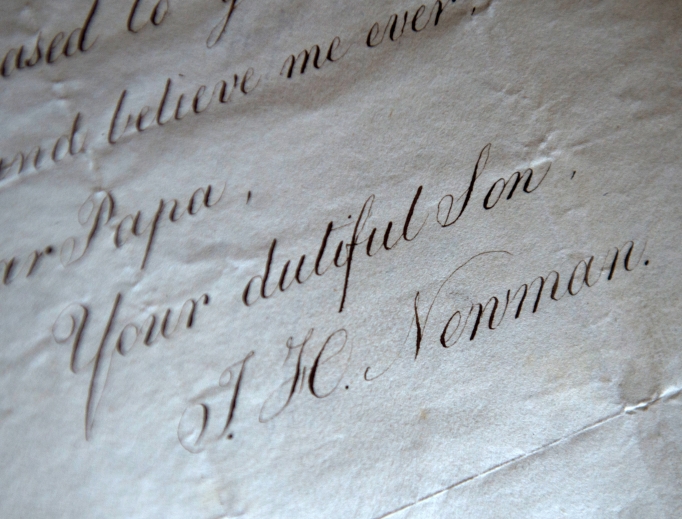 ased to
and believe me ever,
ar Papa,
Your dutiful Son,
J. H. Newman.